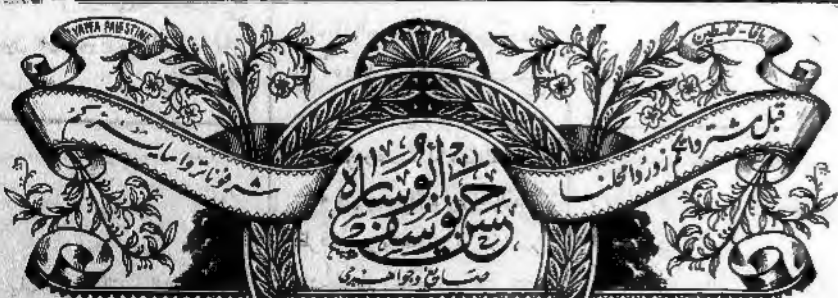 YAFFA PALESTINE
يافا - فلسطين
قبل مشترواتكم زوروا محلنا
شرفونا تروا ما
حسن يوسف ابو ساره
صايغ وجواهرجي